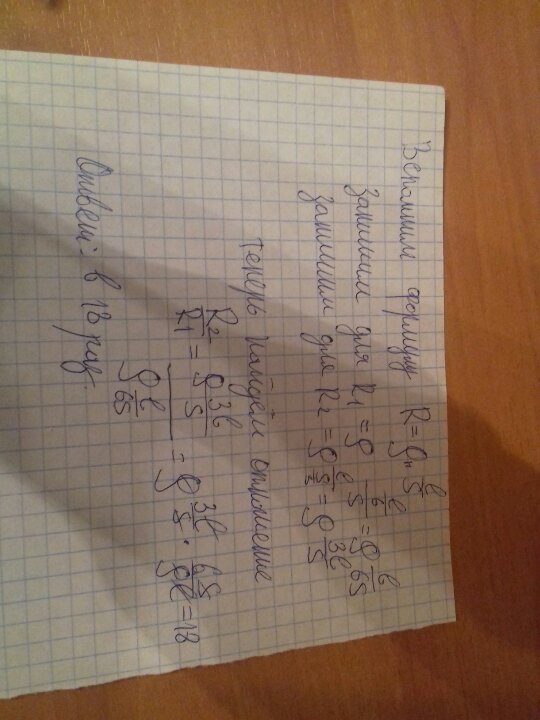 Вспомним формулу R = ρ · l/S
Запишем для R1 = ρ (l/6)/S = ρ l/6S
Запишем для R2 = ρ l/(S/3) = ρ 3l/S
Теперь найдём отношение
R2/R1 = (ρ 3l/S)/(ρ l/6S) = ρ 3l/S · 6S/ρl = 18
Ответ: в 18 раз.